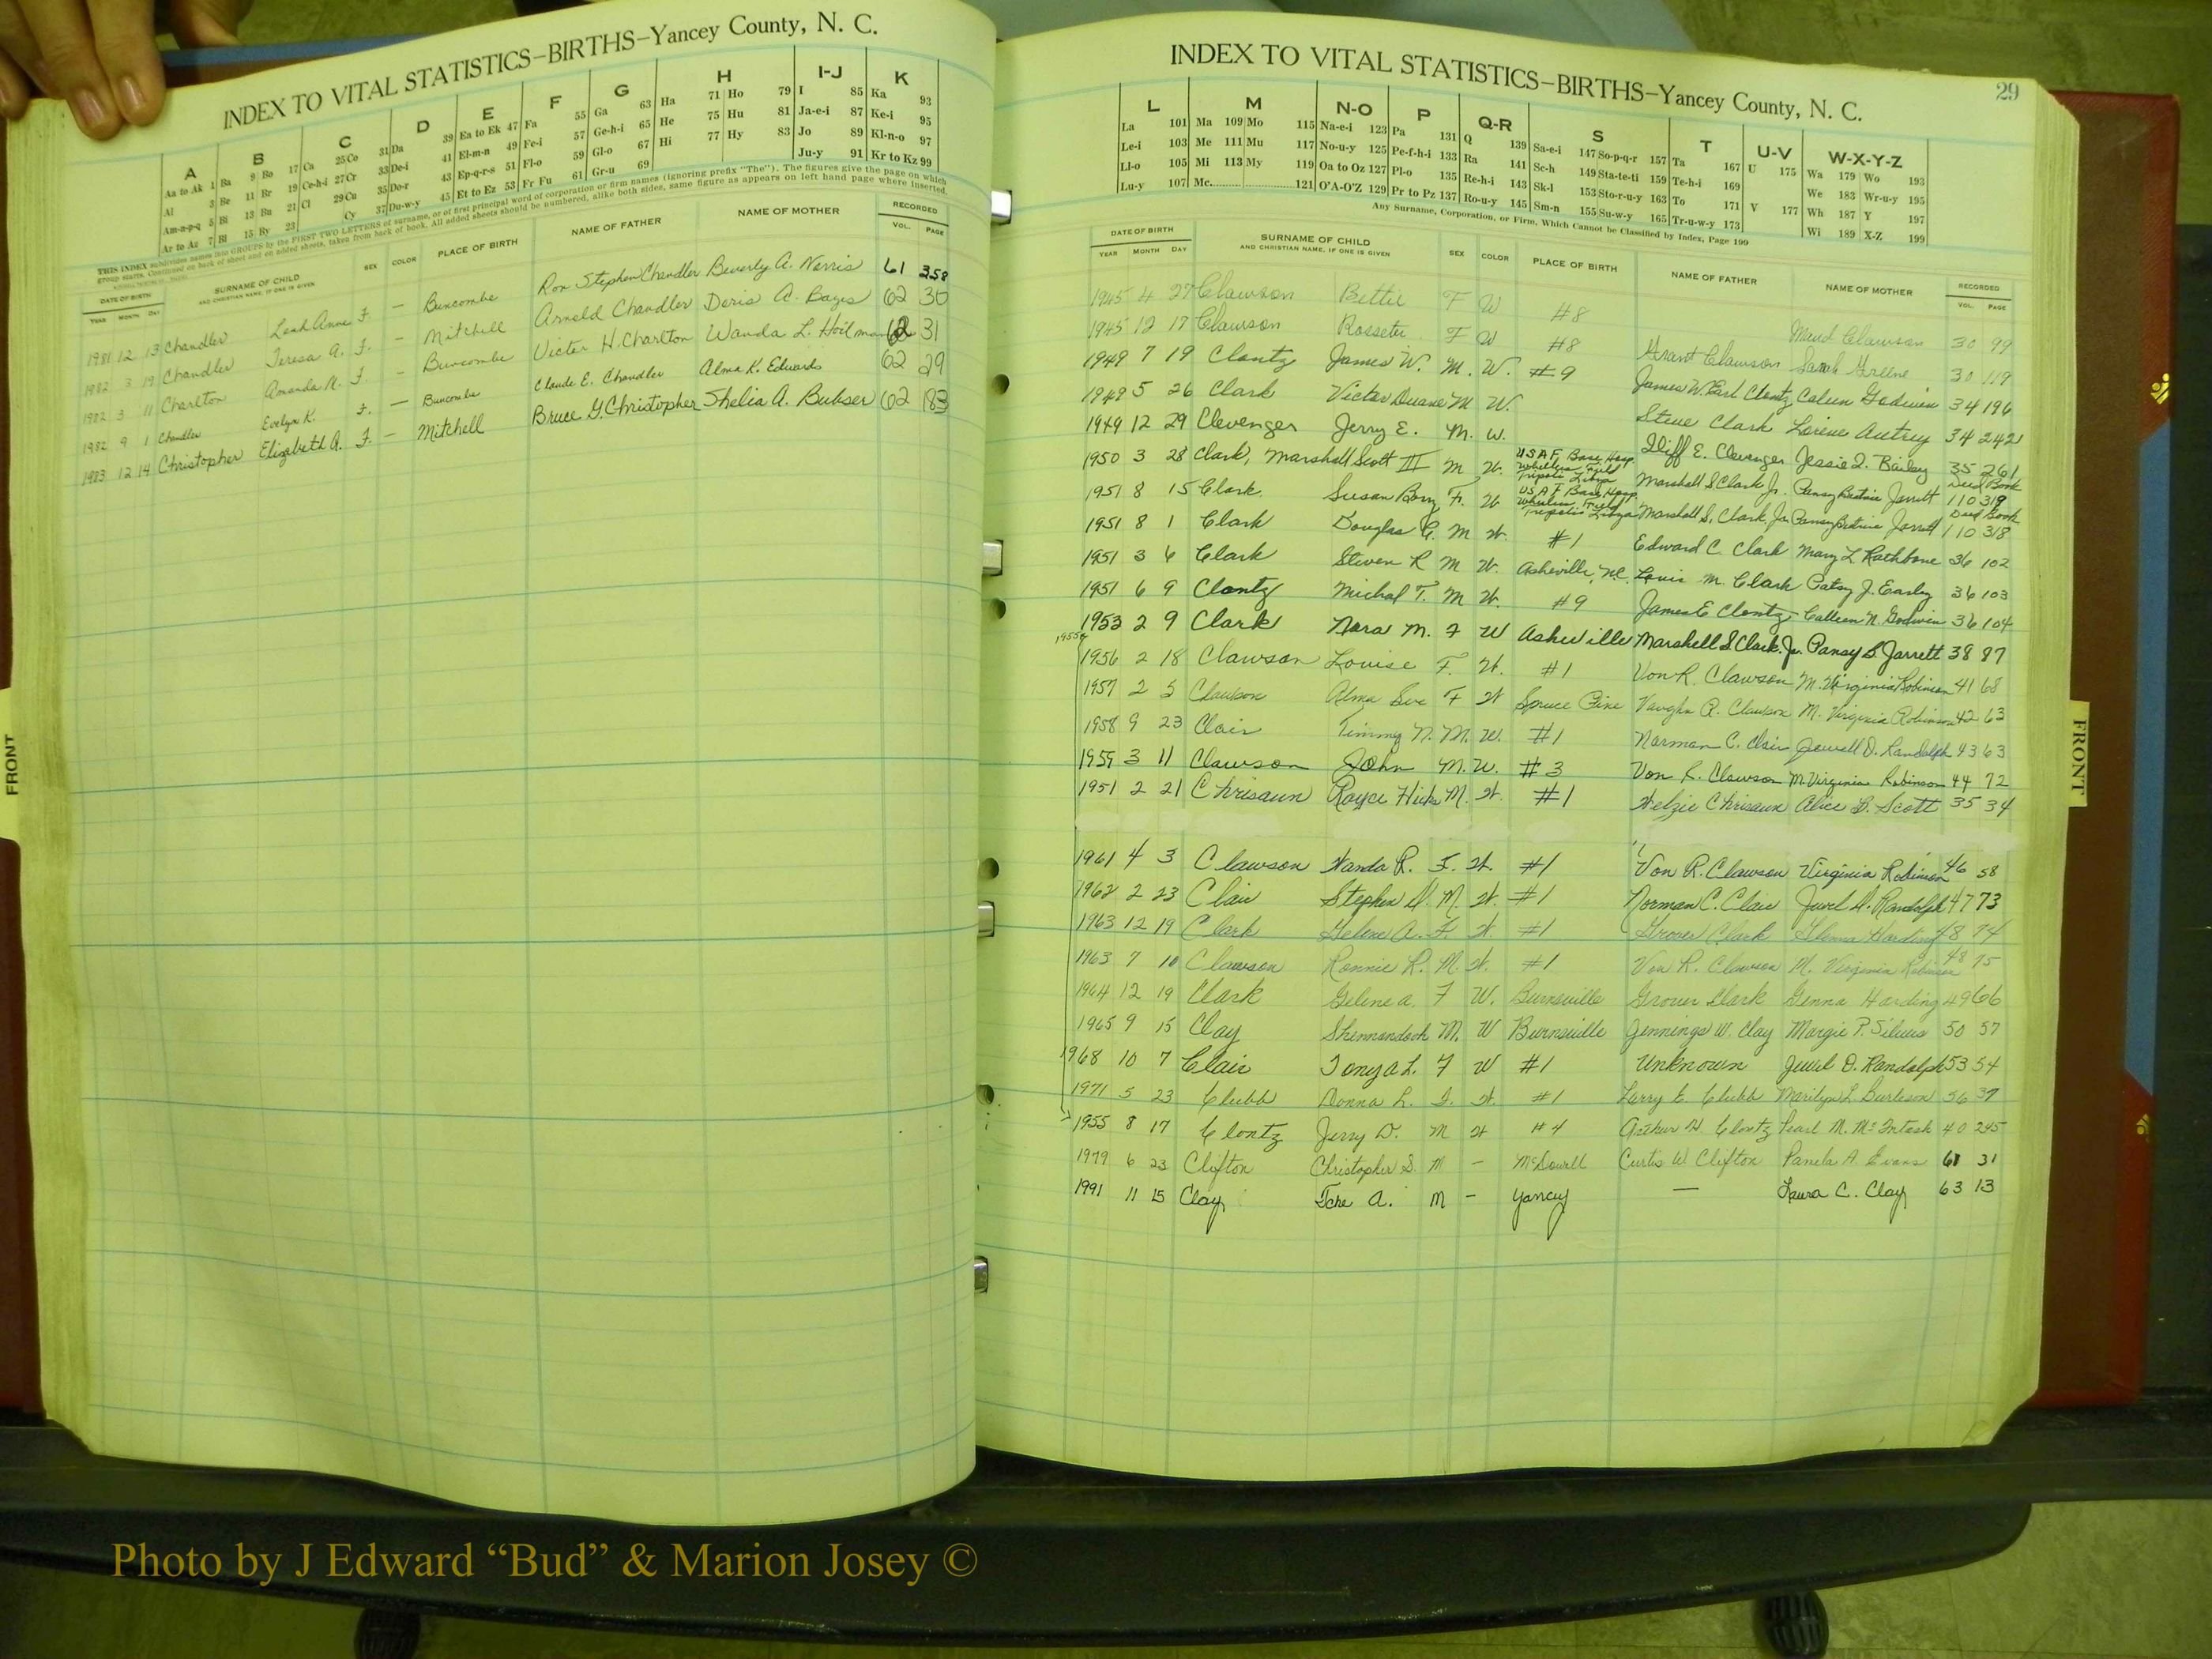 INDEX TO VITAL STATISTICS–BIRTHS–Yancey County, N. C.
A B C D E F G H I-J K
Aa to Ak 1 Ba 9 Bo 17 Ca 25 Co 31 Da 39 Ea to Ek 47 Fa 55 Ga 63 Ha 71 Ho 79 I 85 Ka 93
Al 3 Be 11 Br 19 Ce-h-i 27 Cr 33 De-i 41 El-m-n 49 Fe-i 57 Ge-h-i 65 He 75 Hu 81 Ja-e-i 87 Ke-i 95
Am-n-p-q 5 Bi 13 Bu 21 Cl 29 Cu 35 Do-r 43 Ep-q-r-s 51 Fl-o 59 Gl-o 67 Hi 77 Hy 83 Jo 89 Kl-n-o 97
Ar to Az 7 Bl 15 By 23 Cy 37 Du-w-y 45 Et to Ez 53 Fr Fu 61 Gr-u 69 Ju-y 91 Kr to Kz 99
THIS INDEX subdivides names into GROUPS by the FIRST TWO LETTERS of surname, or of first principal word of corporation or firm names (ignoring prefix "The"). The figures give the page on which
group starts. Continued on back of sheet and on added sheets, taken from back of book. All added sheets should be numbered, alike both sides, same figure as appears on left hand page where inserted.
DATE OF BIRTH SURNAME OF CHILD SEX COLOR PLACE OF BIRTH NAME OF FATHER NAME OF MOTHER RECORDED
YEAR MONTH DAY AND CHRISTIAN NAME, IF ONE IS GIVEN VOL. PAGE
1981 12 13 Chandler Leah Anne F. — Buncombe Ron Stephen Chandler Beverly A. Norris 61 358
1982 3 19 Chandler Teresa A. F. — Mitchell Arnold Chandler Doris A. Bayes 62 30
1982 3 11 Charlton Amanda N. F. — Buncombe Victor H. Charlton Wanda L. Hoilman 62 31
1982 9 1 Chandler Evelyn K. F. — Buncombe Claude E. Chandler Alma K. Edwards 62 29
1983 12 14 Christopher Elizabeth A. F. — Mitchell Bruce G. Christopher Shelia A. Bukser 62 183
FRONT
INDEX TO VITAL STATISTICS–BIRTHS–Yancey County, N. C.
29
L M N-O P Q-R S T U-V W-X-Y-Z
La 101 Ma 109 Mo 115 Na-e-i 123 Pa 131 Q 139 Sa-e-i 147 So-p-q-r 157 Ta 167 U 175 Wa 179 Wo 193
Le-i 103 Me 111 Mu 117 No-u-y 125 Pe-f-h-i 133 Ra 141 Sc-h 149 Sta-te-ti 159 Te-h-i 169 We 183 Wr-u-y 195
Ll-o 105 Mi 113 My 119 Oa to Oz 127 Pl-o 135 Re-h-i 143 Sk-l 153 Sto-r-u-y 163 To 171 V 177 Wh 187 Y 197
Lu-y 107 Mc 121 O'A-O'Z 129 Pr to Pz 137 Ro-u-y 145 Sm-n 155 Su-w-y 165 Tr-u-w-y 173 Wi 189 X-Z 199
Any Surname, Corporation, or Firm, Which Cannot be Classified by Index, Page 199
DATE OF BIRTH SURNAME OF CHILD SEX COLOR PLACE OF BIRTH NAME OF FATHER NAME OF MOTHER RECORDED
YEAR MONTH DAY AND CHRISTIAN NAME, IF ONE IS GIVEN VOL. PAGE
1945 4 27 Clawson Bettie F W #8 Maud Clawson 30 99
1945 12 17 Clawson Rosseter F W #8 Grant Clawson Sarah Greene 30 119
1949 7 19 Clontz James W. M. W. #9 James W. Earl Clontz Colun Godwin 34 196
1949 5 26 Clark Victor Duane M W. Steve Clark Lorene Autrey 34 242
1949 12 29 Clevenger Jerry E. M. W. Iliff E. Clevenger Jessie I. Bailey 35 261
1950 3 28 Clark, Marshall Scott III M W. USAF Base Hosp. Wheelus Field Tripoli Libya Marshall S. Clark Jr. Pansy Beatrice Jarrett Deed Book 110 319
1951 8 15 Clark Susan Bony F. W USAF Base Hosp. Wheelus Field Tripolis Libya Marshall S. Clark, Jr. Pansy Beatrice Jarrett Deed Book 110 318
1951 8 1 Clark Douglas C. M W. #1 Edward C. Clark Mary L Rathbone 36 102
1951 3 6 Clark Steven R M W. Asheville, N.C. Louis M. Clark Patsy J. Easley 36 103
1951 6 9 Clontz Michal T. M W. #9 James E Clontz Colleen N. Godwin 36 104
1953 2 9 Clark Nora M. F W Asheville Marshell S. Clark, Jr. Pansy B. Jarrett 38 87
1955
1956 2 18 Clawson Louise F. W. #1 Von R. Clawson M. Virginia Robinson 41 68
1957 2 5 Clawson Alma Sue F W Spruce Pine Vaughn R. Clawson M. Virginia Robinson 42 63
1958 9 23 Clair Timmy N. M. W. #1 Norman C. Clair Jewell D. Randolph 43 63
1959 3 11 Clawson John M. W. #3 Von R. Clawson M. Virginia Robinson 44 72
1951 2 21 Chrisawn Royce Hicks M. W. #1 Welzie Chrisawn Alice B. Scott 35 34
1961 4 3 Clawson Wanda R. F. W. #1 Von R. Clawson Virginia Robinson 46 58
1962 2 23 Clair Stephen D. M. W. #1 Norman C. Clair Juel D. Randolph 47 73
1963 12 19 Clark Gelene A. F. W. #1 Grover Clark Glenna Harding 48 74
1963 7 10 Clawson Ronnie L. M. W. #1 Von R. Clawson M. Virginia Robinson 48 75
1964 12 19 Clark Gelene A. F W. Burnsville Grover Clark Genna Harding 49 66
1965 9 15 Clay Shennandoah M. W Burnsville Jennings W. Clay Margie P. Silvers 50 57
1968 10 7 Clair Tonya L. F W #1 Unknown Juel D. Randolph 53 54
1971 5 23 Chubb Donna L. F. W. #1 Larry E. Chubb Marilyn L. Burleson 56 37
1955 8 17 Clontz Jerry D. M W #4 Arthur H. Clontz Pearl M. McIntosh 40 245
1979 6 23 Clifton Christopher S. M — McDowell Curtis W. Clifton Pamela A. Evans 61 31
1991 11 15 Clay A. M — Yancey — Laura C. Clay 63 13
FRONT
Photo by J Edward “Bud” & Marion Josey ©